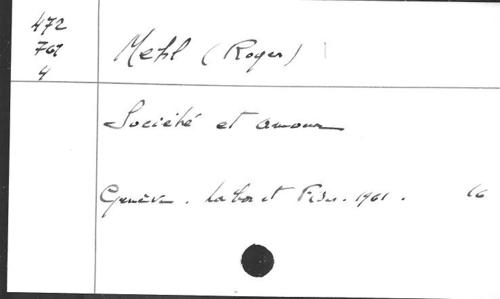 472
761
4
Mehl (Roger)
Société et amour
Genève. Labor et Fides. 1961. 16